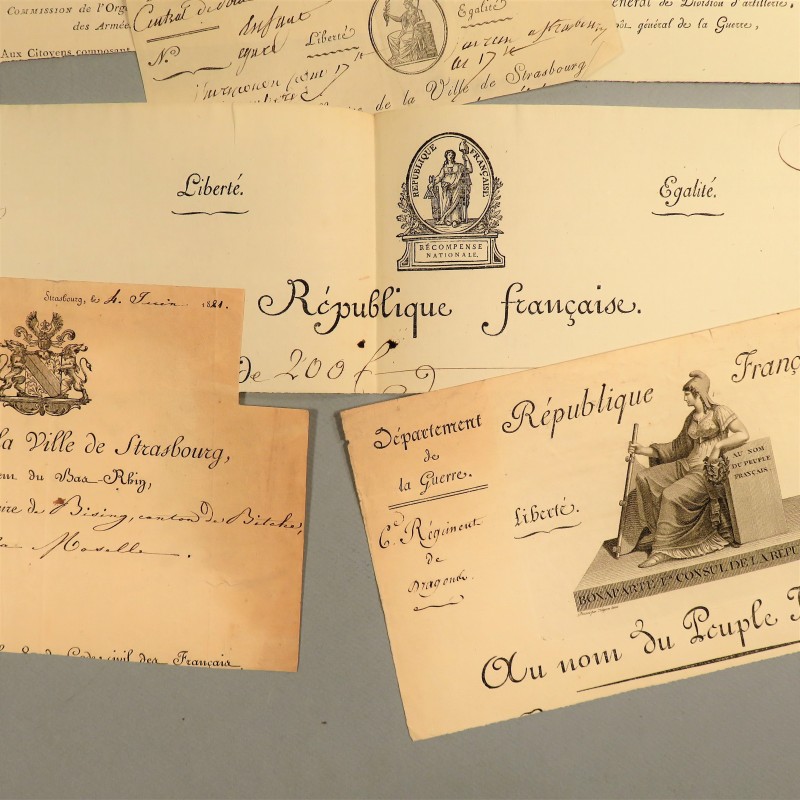 Commission de l'Org
des Armée
Aux Citoyens composant
Central de
Enfant
N.º
Liberté
Egalité
de la Ville de Strasbourg
général de Division d'artillerie,
général de la Guerre,
Liberté.
RÉPUBLIQUE FRANÇAISE.
RÉCOMPENSE
NATIONALE.
Egalité.
République française.
de 200 f
Strasbourg, le 4 Juin 1821.
la Ville de Strasbourg,
du Bas-Rhin,
de Bising, canton de Bitche,
la Moselle.
civil des Français
Département
de
la Guerre.
6.e Régiment
de
Dragons.
République Franç
Liberté.
AU NOM
DU PEUPLE
FRANÇAIS.
BONAPARTE 1er CONSUL DE LA RÉPU
Au nom du Peuple